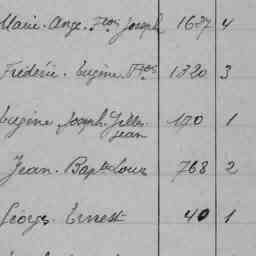 Marie. Ange. Fçois Joseph 1637 4
Frédéric. Eugène. Fçois 1320 3
Eugène Joseph. Gilles 170 1
Jean
Jean. Baptte Louis 768 2
Georges. Ernest 40 1